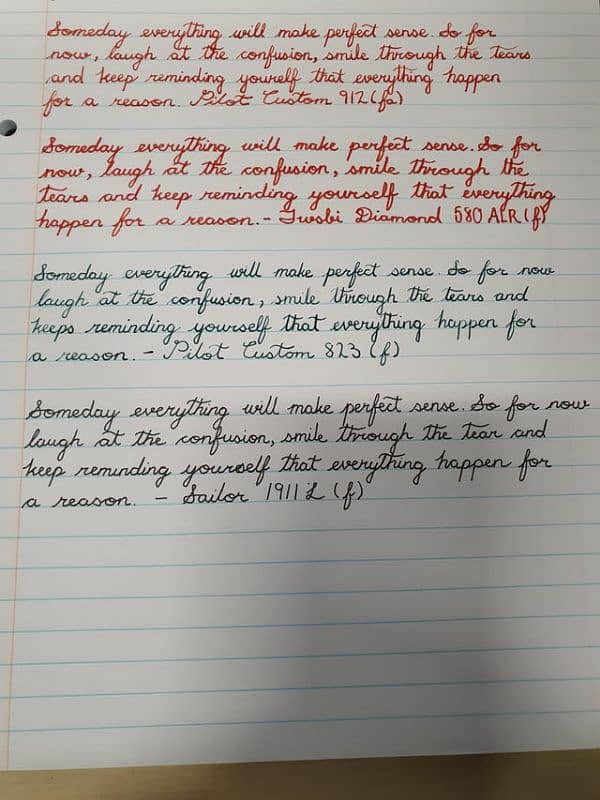 Someday everything will make perfect sense. So for
now, laugh at the confusion, smile through the tears
and keep reminding yourself that everything happen
for a reason. Pilot Custom 912 (fa)
Someday everything will make perfect sense. So for
now, laugh at the confusion, smile through the
tears and keep reminding yourself that everything
happen for a reason. - Twsbi Diamond 580 ALR (f)
Someday everything will make perfect sense. So for now
laugh at the confusion, smile through the tears and
keeps reminding yourself that everything happen for
a reason. - Pilot Custom 823 (f)
Someday everything will make perfect sense. So for now
laugh at the confusion, smile through the tear and
keep reminding yourself that everything happen for
a reason. - Sailor 1911 L (f)